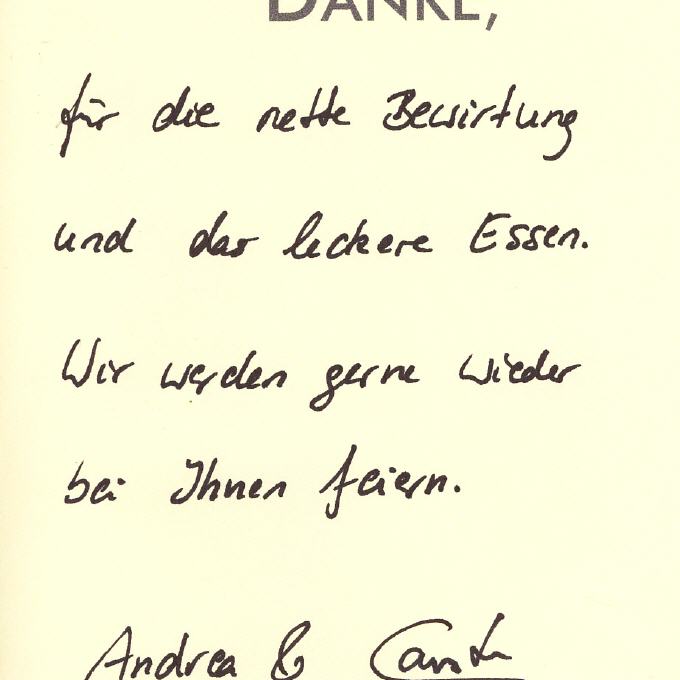 DANKE,
für die nette Bewirtung
und das leckere Essen.
Wir werden gerne wieder
bei Ihnen feiern.
Andrea &